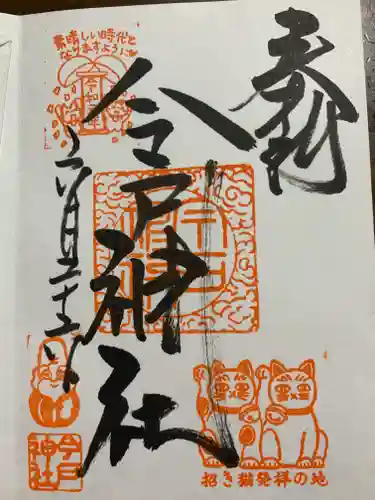 奉拝
今戸神社
素晴しい時代と
なりますように
令和
六月二十二日
今戸
神社
招き猫発祥の地